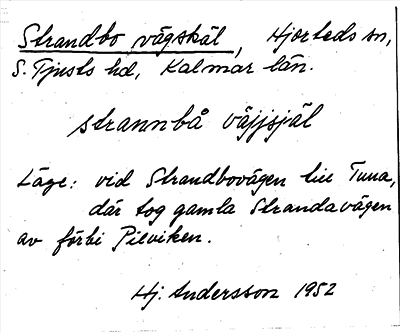 Strandbo vägskäl, Hjorteds sn,
S. Tjusts hd, Kalmar län.
strannbå väjjsjäl
Läge: vid Strandbovägen till Tuna,
där tog gamla Strandavägen
av förbi Pilviken.
Hj. Andersson 1952